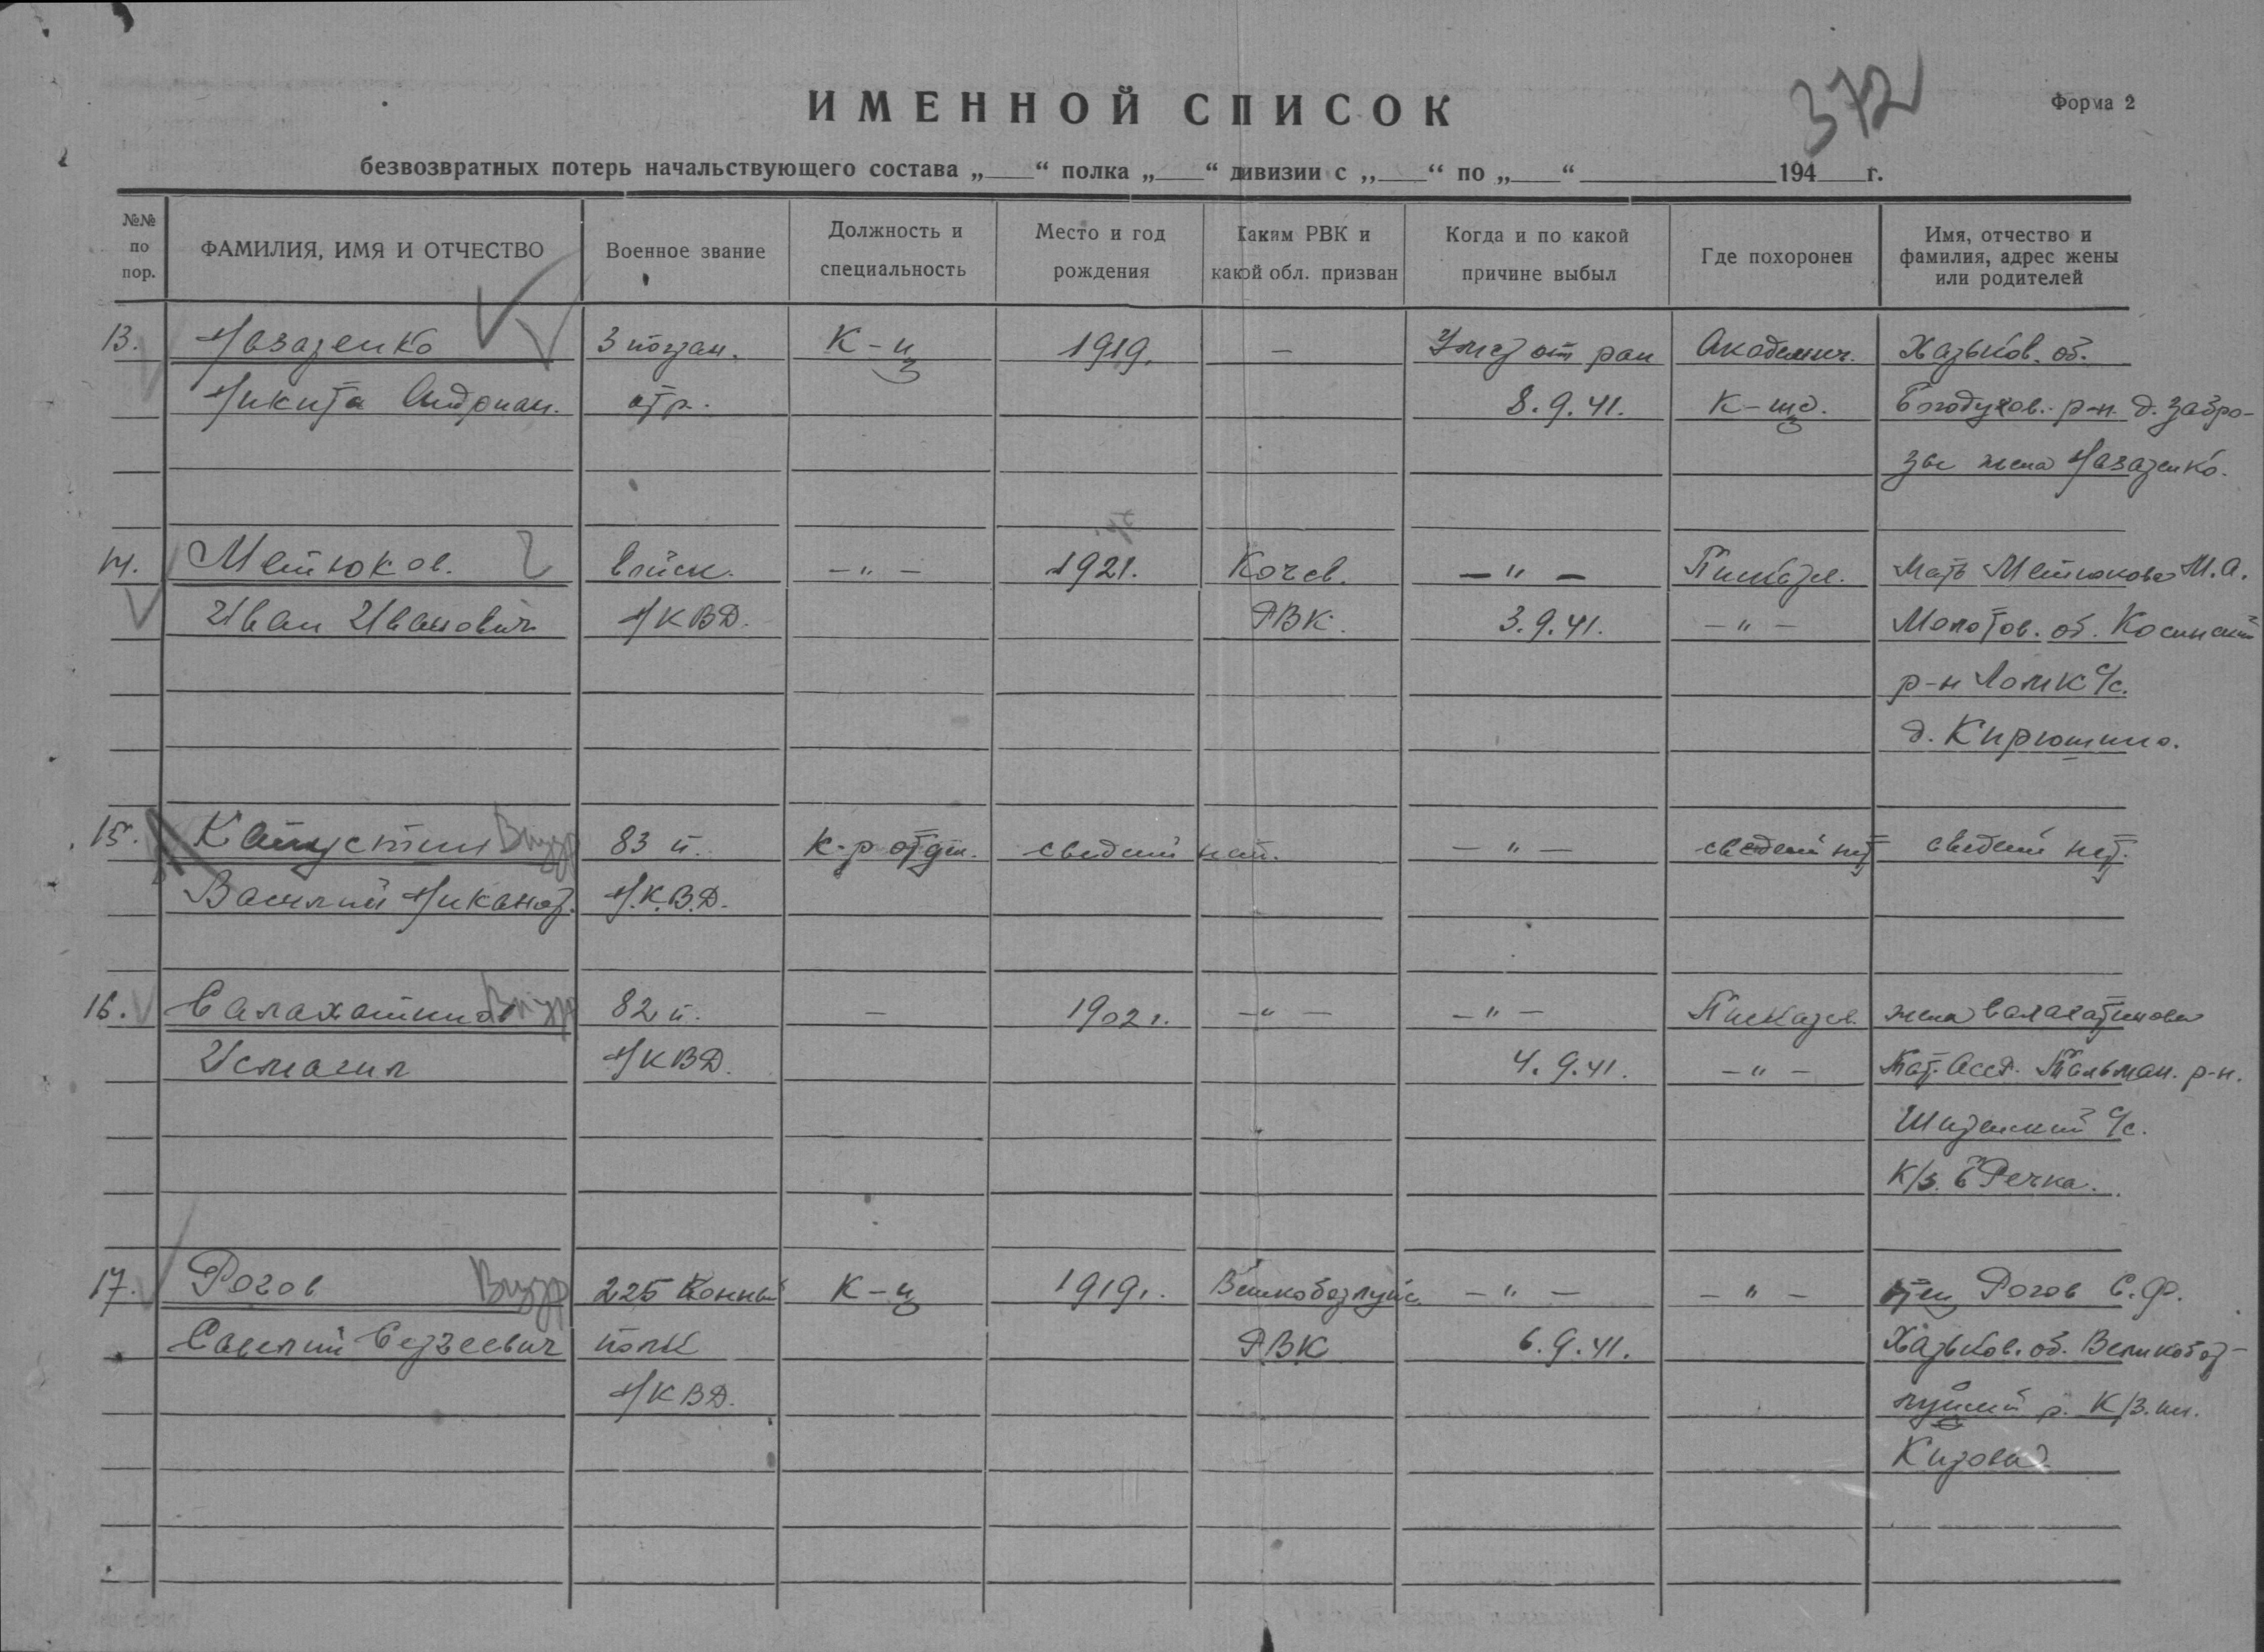 372
Форма 2
ИМЕННОЙ СПИСОК
безвозвратных потерь начальствующего состава „___“ полка „___“ дивизии с „___“ по „___“ ___ 194__ г.
№№ по пор.
ФАМИЛИЯ, ИМЯ И ОТЧЕСТВО
Военное звание
Должность и специальность
Место и год рождения
Каким РВК и какой обл. призван
Когда и по какой причине выбыл
Где похоронен
Имя, отчество и фамилия, адрес жены или родителей
13. Назаренко 3 погран. К-ц 1919. — Умер от ран Академич. Харьков. об.
Никита Андриан. отр. 8.9.41. К-ще. Богодухов. р-н. д. Забро-
зы жена Назаренко.
14. Метюков. войск. —"— 1921. Кочев. —"— Пискарев. Мать Метюкова М.А.
Иван Иванович НКВД. РВК. 3.9.41. —"— Молотов. об. Косинский
р-н с/с.
д. Кирюшино.
15. Капустин 83 п. к-р отдел. сведений нет. —"— сведений нет сведений нет.
Василий Никанор. Н.К.В.Д.
16. Салахатинов 82 п. — 1902 г. —"— —"— Пискарев. жена Салахатинова
Исмагил НКВД. 4.9.41. —"— Тат. АССР. Тельман. р-н.
с/с.
К/з. Речка.
17. Рогов 225 конный К-ц 1919 г. Великобурлукс. —"— —"— отец Рогов С.Ф.
Савелий Сергеевич полк РВК 6.9.41. Харьков. об. Великобур-
НКВД. лукский р. К/з. им.
Кирова